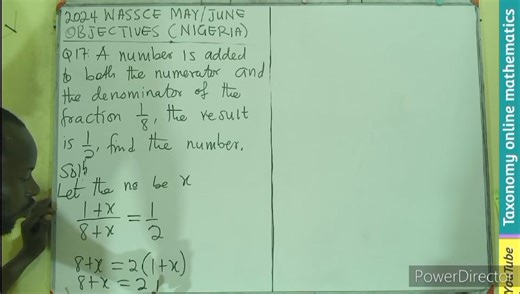 2024 WASSCE MAY/JUNE
OBJECTIVES (NIGERIA)
Q17. A number is added
to both the numerator and
the denominator of the
fraction 1/8, the result
is 1/2, find the number.
Soln
Let the no be x
(1+x)/(8+x) = 1/2
8+x = 2(1+x)
8+x = 2
Taxonomy online mathematics
YouTube
PowerDirector